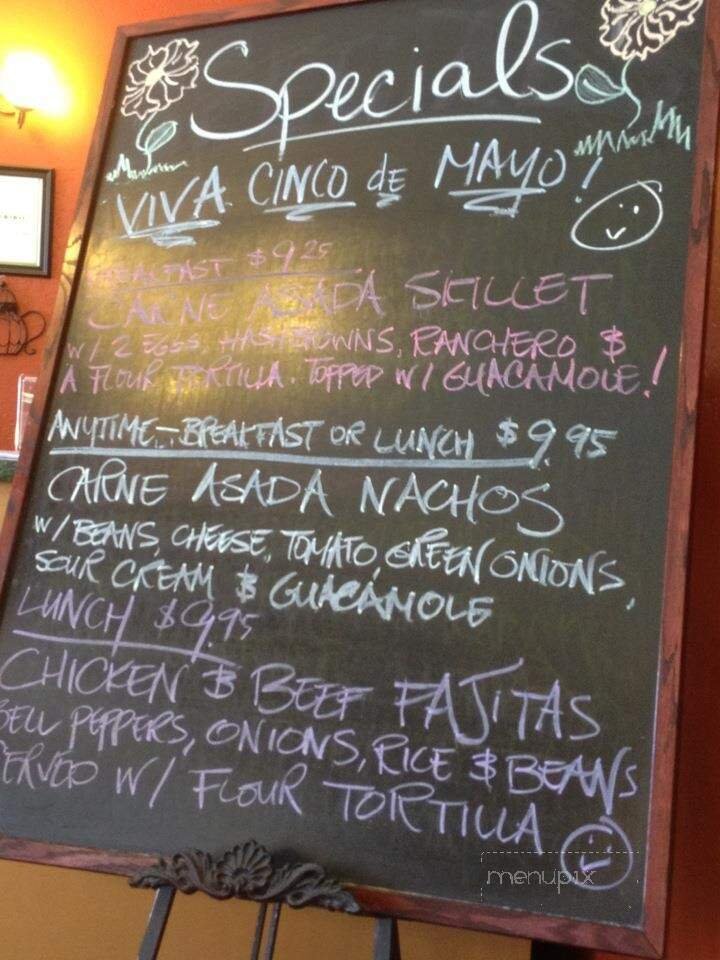 Specials
VIVA CINCO de MAYO!
BREAKFAST $9.25
CARNE ASADA SKILLET
W/ 2 EGGS, HASHBROWNS, RANCHERO &
A FLOUR TORTILLA. TOPPED W/ GUACAMOLE!
ANYTIME - BREAKFAST OR LUNCH $9.95
CARNE ASADA NACHOS
W/ BEANS, CHEESE, TOMATO, GREEN ONIONS,
SOUR CREAM & GUACAMOLE
LUNCH $9.95
CHICKEN & BEEF FAJITAS
BELL PEPPERS, ONIONS, RICE & BEANS
SERVED W/ FLOUR TORTILLA
menupix